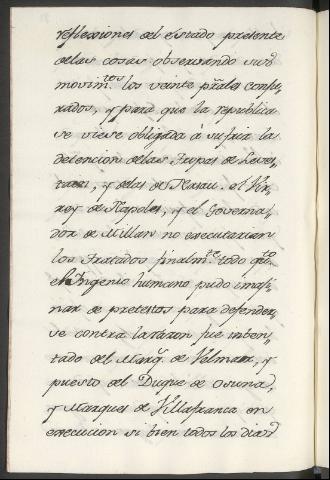 reflexiones del estado presente
delas cosas observando sus
movim.tos los veinte prãles conju=
rados, y para que la republica
se viese obligada à sufrir las
detencion delas Tropas de Leves=
tain, y delas de Nasau. el Vir=
rey de Napoles, y el Governa=
dor de Millan no executarian
los Tratados finalm.te todo q.to
el Ingenio humano pudo imaji=
nar de pretestos para defender=
se contra la razon fue inben=
tado del Marq.s de Velmar, y
puesto del Duque de Osuna,
y Marques de Villafranca en
execucion si bien todos los dias